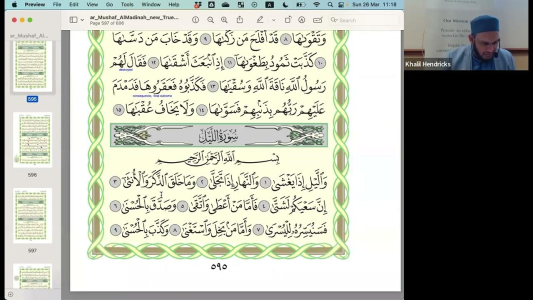 Sun 26 Mar 11:18
ar_Mushaf_AlMadinah_new_True...
Page 597 of 636
Search
Khalil Hendricks
وَتَقْوَىٰهَا ٨ قَدْ أَفْلَحَ مَن زَكَّىٰهَا ٩ وَقَدْ خَابَ مَن دَسَّىٰهَا
١٠ كَذَّبَتْ ثَمُودُ بِطَغْوَىٰهَا ١١ إِذِ ٱنۢبَعَثَ أَشْقَىٰهَا ١٢ فَقَالَ لَهُمْ
رَسُولُ ٱللَّهِ نَاقَةَ ٱللَّهِ وَسُقْيَـٰهَا ١٣ فَكَذَّبُوهُ فَعَقَرُوهَا فَدَمْدَمَ
عَلَيْهِمْ رَبُّهُم بِذَنۢبِهِمْ فَسَوَّىٰهَا ١٤ وَلَا يَخَافُ عُقْبَـٰهَا ١٥
سُورَةُ اللَّيْلِ
بِسْمِ ٱللَّهِ ٱلرَّحْمَـٰنِ ٱلرَّحِيمِ
وَٱلَّيْلِ إِذَا يَغْشَىٰ ١ وَٱلنَّهَارِ إِذَا تَجَلَّىٰ ٢ وَمَا خَلَقَ ٱلذَّكَرَ وَٱلْأُنثَىٰٓ ٣
إِنَّ سَعْيَكُمْ لَشَتَّىٰ ٤ فَأَمَّا مَنْ أَعْطَىٰ وَٱتَّقَىٰ ٥ وَصَدَّقَ بِٱلْحُسْنَىٰ ٦
فَسَنُيَسِّرُهُۥ لِلْيُسْرَىٰ ٧ وَأَمَّا مَنۢ بَخِلَ وَٱسْتَغْنَىٰ ٨ وَكَذَّبَ بِٱلْحُسْنَىٰ ٩
٥٩٥
595
596
597